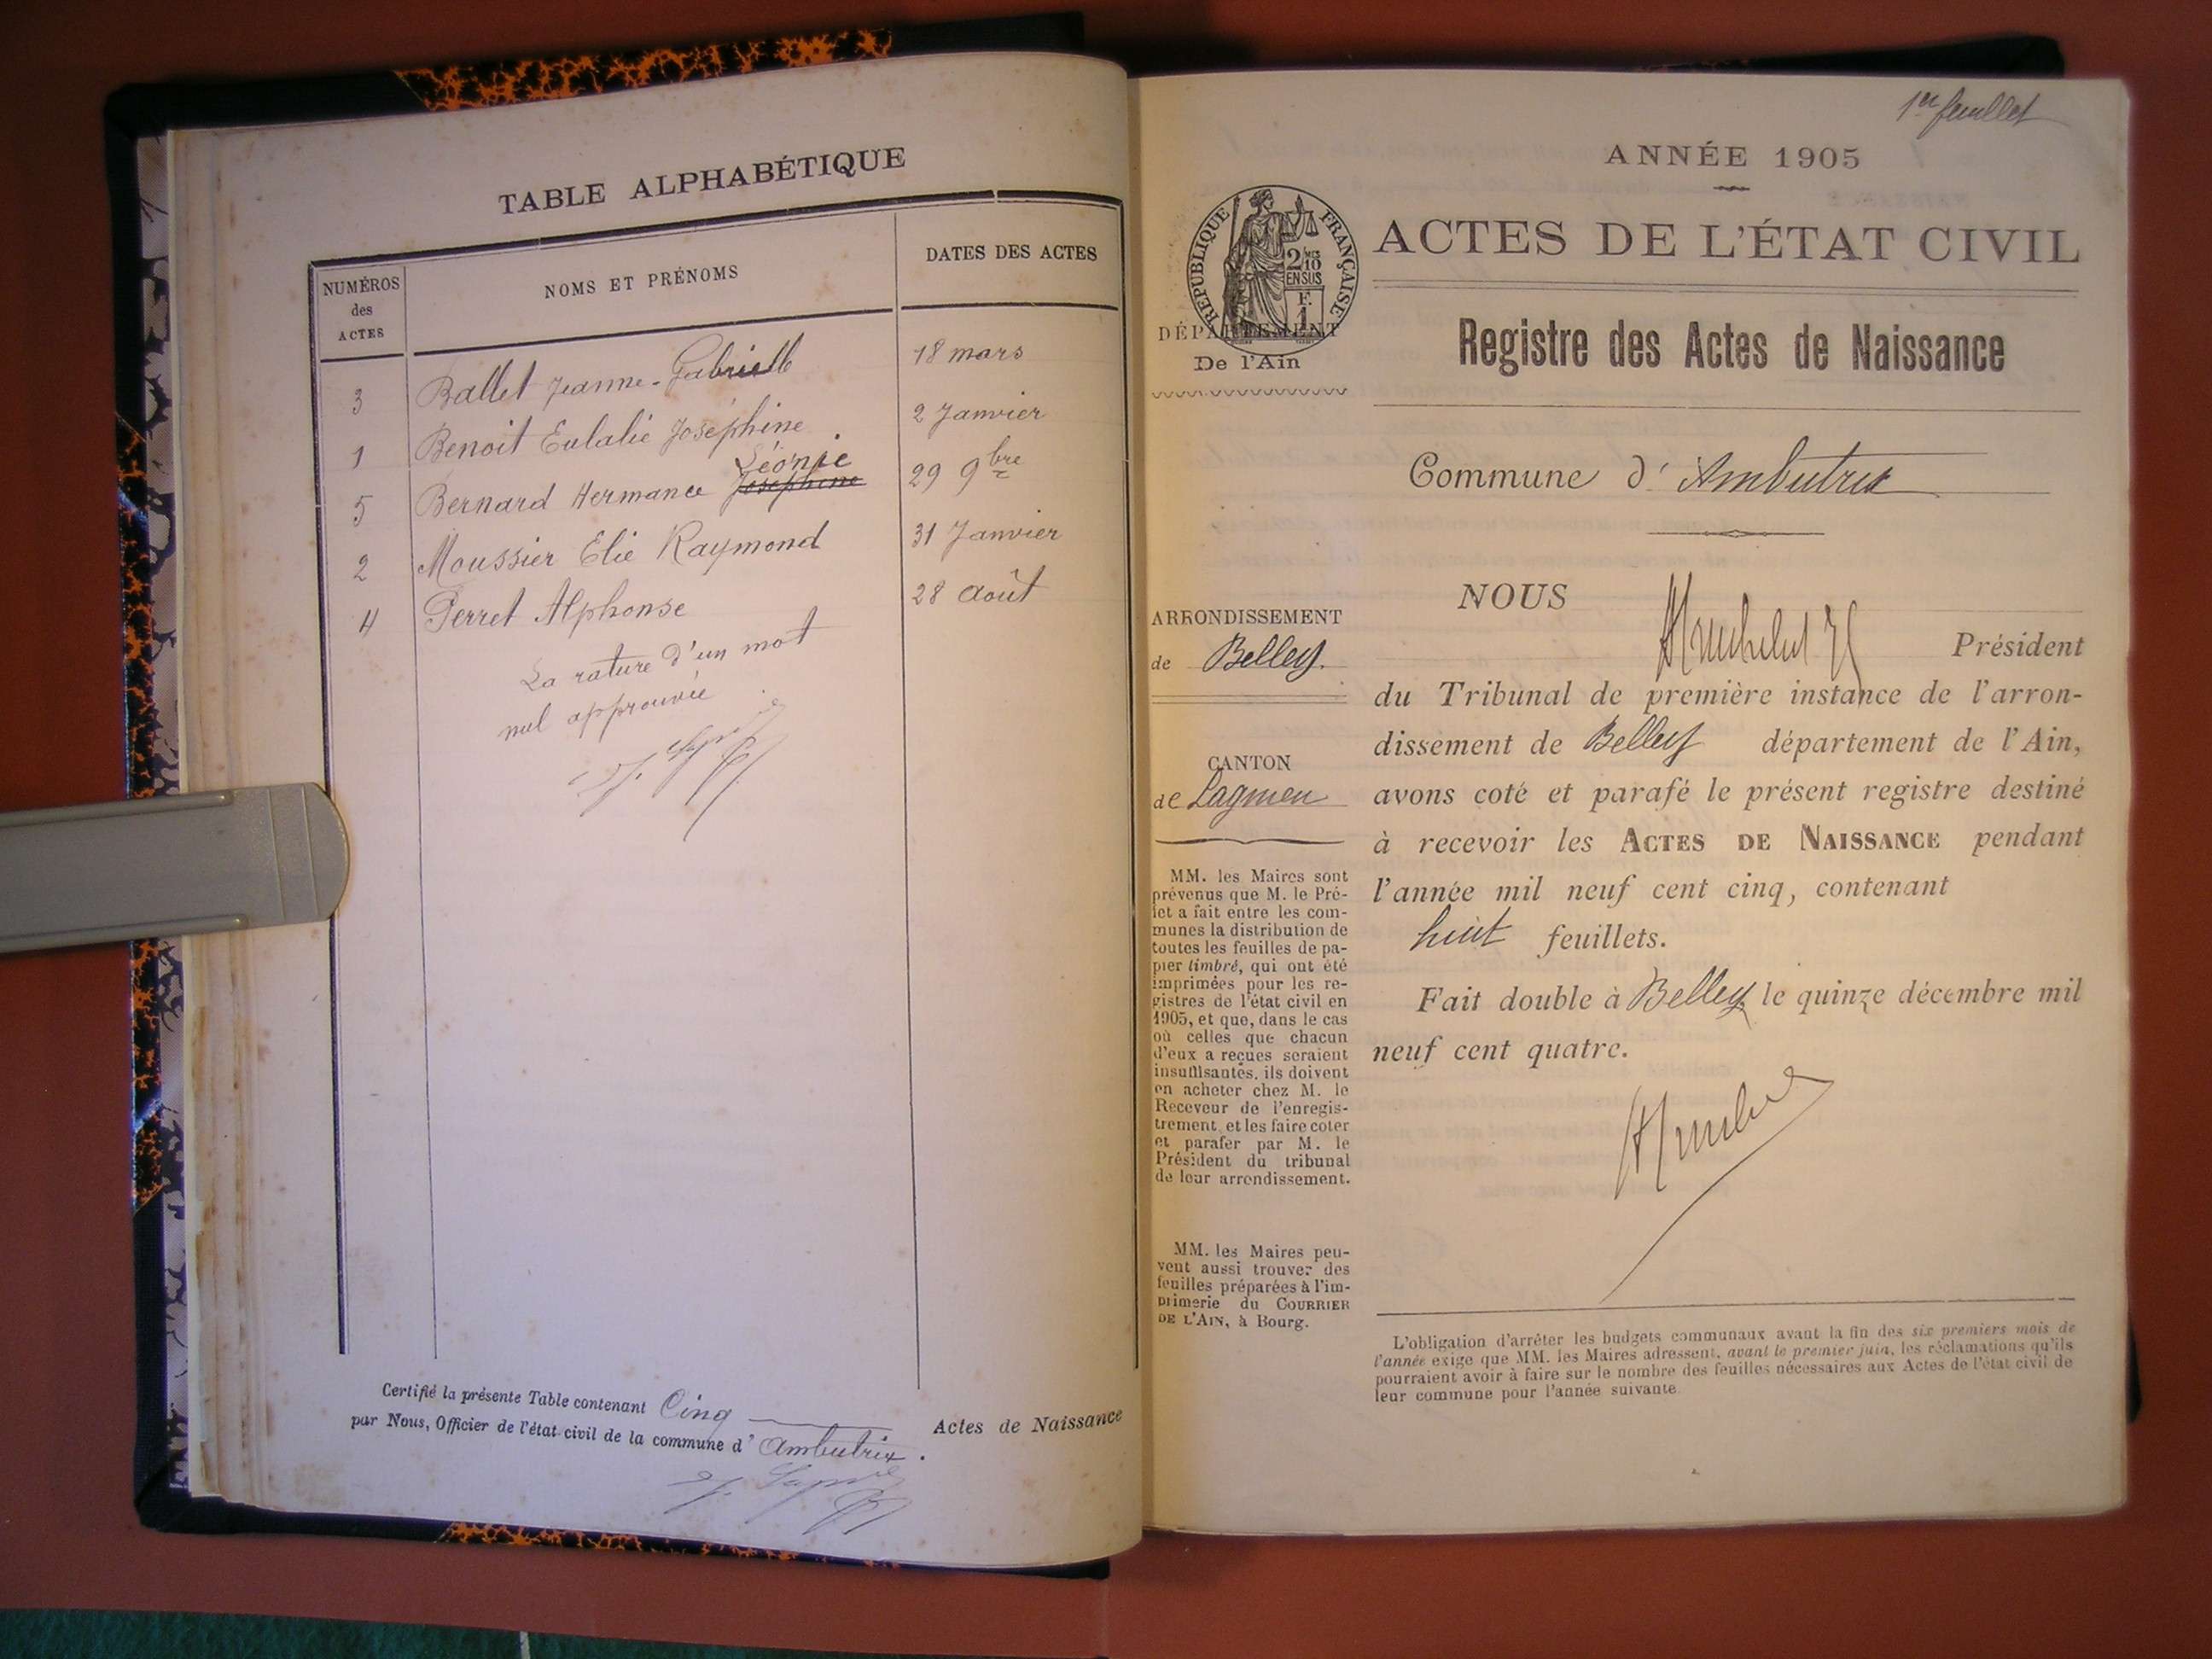 TABLE ALPHABÉTIQUE
NUMÉROS des ACTES
NOMS ET PRÉNOMS
DATES DES ACTES
3 Ballet Jeanne-Gabrielle 18 mars
1 Benoit Eulalie Joséphine 2 Janvier
Léonie
5 Bernard Hermance Joséphine 29 9bre
2 Moussier Elie Raymond 31 Janvier
4 Perret Alphonse 28 Août
La rature d'un mot
nul approuvée
Certifié la présente Table contenant Cinq Actes de Naissance
par Nous, Officier de l'état civil de la commune d' Ambutrix.
1er feuillet
ANNÉE 1905
ACTES DE L'ÉTAT CIVIL
RÉPUBLIQUE FRANÇAISE
2/10
EN SUS
F.
1
DÉPARTEMENT
De l'Ain
Registre des Actes de Naissance
Commune d' Ambutrix
ARRONDISSEMENT
de Belley.
CANTON
de Lagnieu
MM. les Maires sont
prévenus que M. le Pré-
fet a fait entre les com-
munes la distribution de
toutes les feuilles de pa-
pier timbré, qui ont été
imprimées pour les re-
gistres de l'état civil en
1905, et que, dans le cas
où celles que chacun
d'eux a reçues seraient
insuffisantes, ils doivent
en acheter chez M. le
Receveur de l'enregis-
trement et les faire coter
et parafer par M. le
Président du tribunal
de leur arrondissement.
MM. les Maires peu-
vent aussi trouver des
feuilles préparées à l'im-
primerie du COURRIER
DE L'AIN, à Bourg.
NOUS Président
du Tribunal de première instance de l'arron-
dissement de Belley département de l'Ain,
avons coté et parafé le présent registre destiné
à recevoir les ACTES DE NAISSANCE pendant
l'année mil neuf cent cinq, contenant
huit feuillets.
Fait double à Belley le quinze décembre mil
neuf cent quatre.
L'obligation d'arrêter les budgets communaux avant la fin des six premiers mois de
l'année exige que MM. les Maires adressent, avant le premier juin, les réclamations qu'ils
pourraient avoir à faire sur le nombre des feuilles nécessaires aux Actes de l'état civil de
leur commune pour l'année suivante.